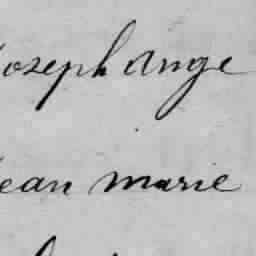 Joseph Ange
Jean Marie